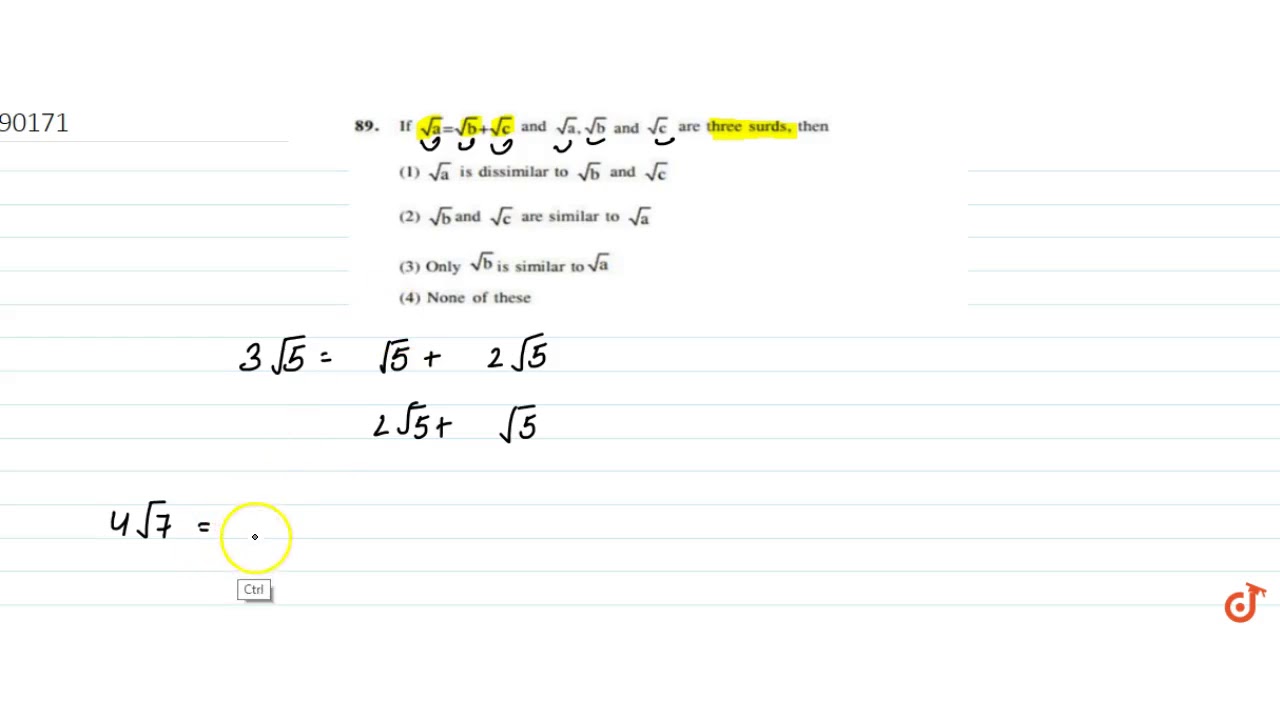 90171
89. If √a=√b+√c and √a, √b and √c are three surds, then
(1) √a is dissimilar to √b and √c
(2) √b and √c are similar to √a
(3) Only √b is similar to √a
(4) None of these
3√5 = √5 + 2√5
2√5 + √5
4√7 =
Ctrl